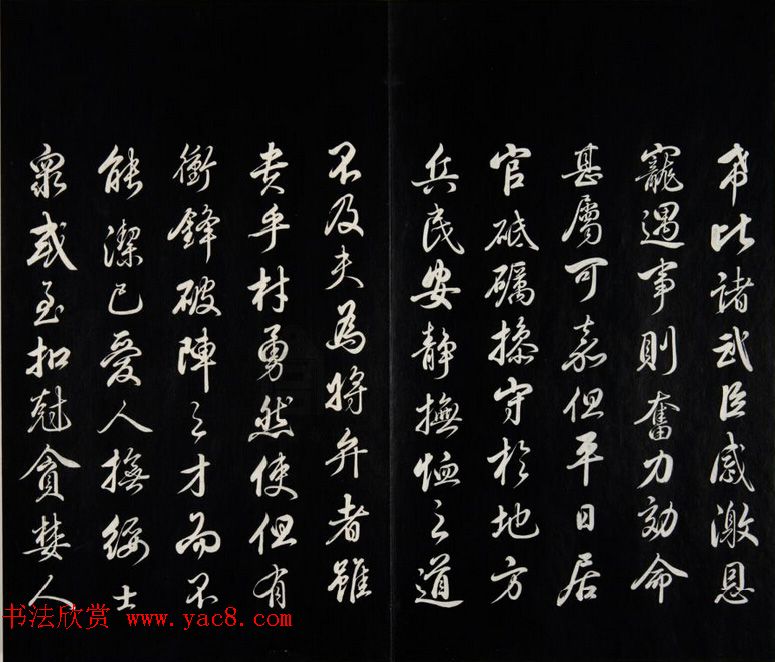 市比諸武臣感激恩
寵遇事則奮力効命
甚屬可嘉但平日居
官砥礪操守於地方
兵民安静撫恤之道
不及夫為將弁者雖
貴乎材勇然使但有
衝鋒破陣之才而不
能潔己愛人撫綏士
衆或至扣尅貪婪人
书法欣赏 www.yac8.com